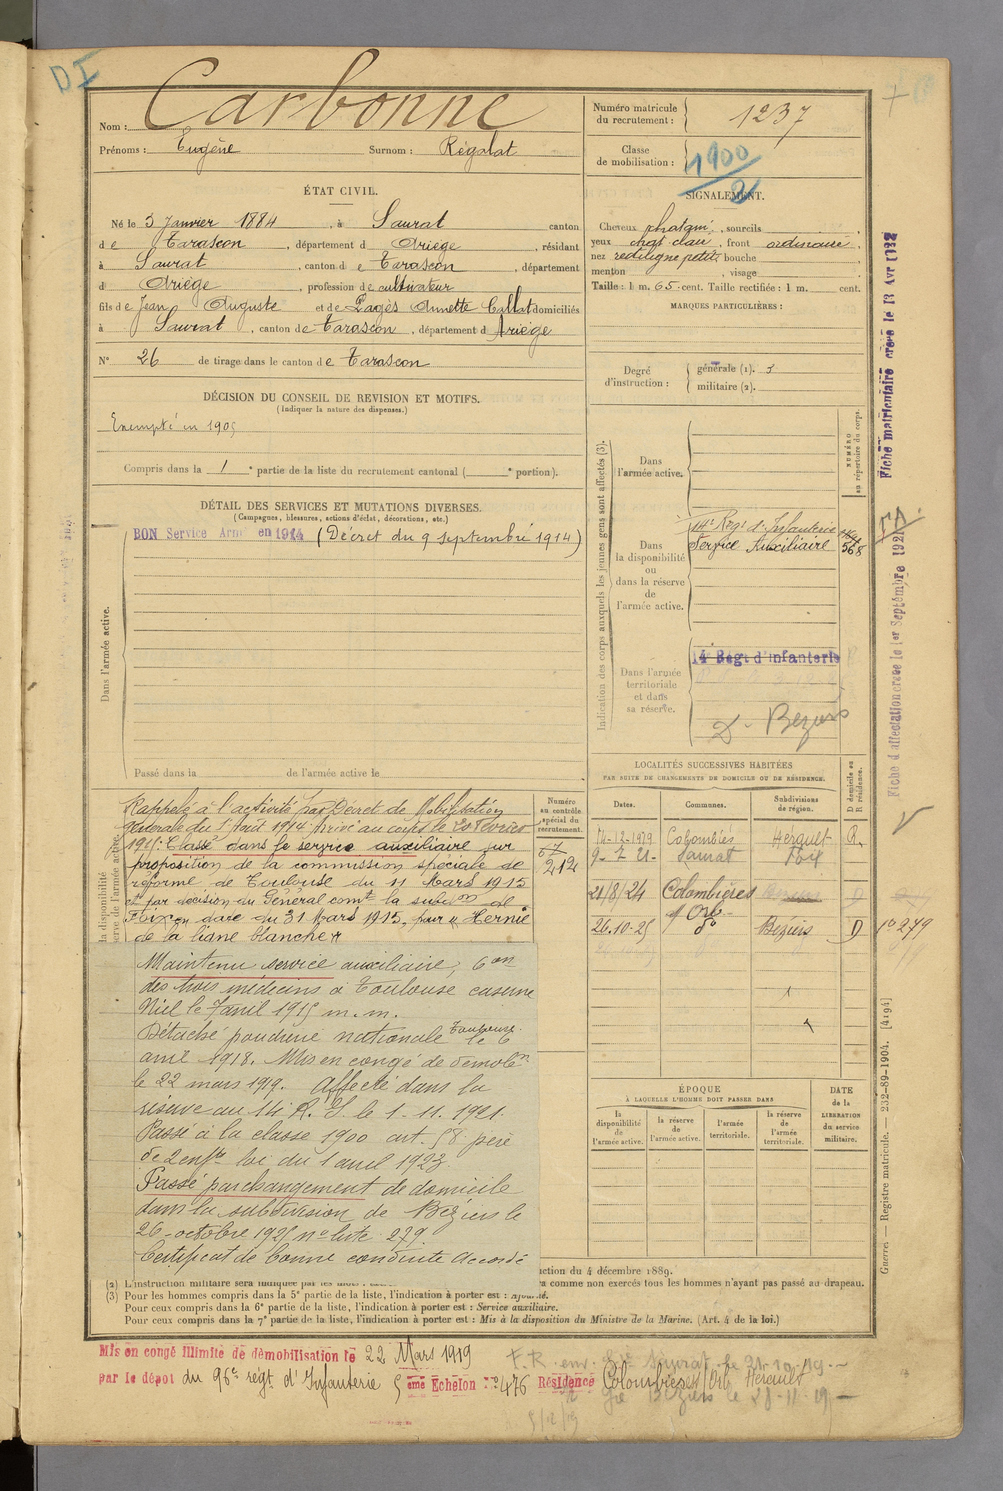 DI
Nom : Carbonne
Prénoms : Eugène Surnom : Régalat
ÉTAT CIVIL.
Né le 3 Janvier 1884, à Saurat canton
de Tarascon, département d Ariège, résidant
à Saurat, canton de Tarascon, département
d Ariège, profession de cultivateur
fils de Jean Auguste et de Pagès Annette Callat domiciliés
à Saurat, canton de Tarascon, département d Ariège
N° 26 de tirage dans le canton de Tarascon
DÉCISION DU CONSEIL DE REVISION ET MOTIFS.
(Indiquer la nature des dispenses.)
Exempté en 1905
Compris dans la 1 e partie de la liste du recrutement cantonal ( e portion).
DÉTAIL DES SERVICES ET MUTATIONS DIVERSES.
(Campagnes, blessures, actions d'éclat, décorations, etc.)
BON Service Armé en 1914 (Décret du 9 septembre 1914)
Dans l'armée active.
Passé dans la de l'armée active le
Rappelé à l'activité par Décret de Mobilisation
Générale du 1 Août 1914 Arrivé au corps le 20 Février
1915. Classé dans le service auxiliaire sur
proposition de la commission spéciale de
réforme de Toulouse du 11 Mars 1915
et par décision du Général comt la subdon de
Foix en date du 31 Mars 1915, pour "Hernie
de la ligne blanche"
Maintenu service auxiliaire, Con
des trois médecins à Toulouse caserne
Niel le 7 avril 1915 m.m.
Détaché poudrerie nationale Toulouse le 6
avril 1918. Mis en congé de démobon
le 22 mars 1919. Affecté dans la
réserve au 14 R. I. le 1-11.1921.
Passé à la classe 1900 art. 58 père
de 2 enfts loi du 1 avril 1923
Passé par changement de domicile
dans la subdivision de Béziers le
26 octobre 1925 n° liste 279
Certificat de bonne conduite Accordé
Numéro
au contrôle
spécial du
recrutement.
212
Numéro matricule
du recrutement : 1237
Classe
de mobilisation : 1900/2
SIGNALEMENT.
Cheveux chatain, sourcils
yeux chat. clair, front ordinaire,
nez rectiligne petit, bouche
menton , visage
Taille : 1 m. 65 cent. Taille rectifiée : 1 m. cent.
MARQUES PARTICULIÈRES :
Degré
d'instruction :
générale (1). 3
militaire (2).
Indication des corps auxquels les jeunes gens sont affectés (3).
NUMÉRO
au répertoire du corps.
Dans
l'armée active.
Dans
la disponibilité
ou
dans la réserve
de
l'armée active.
14e Régt d'Infanterie
Service Auxiliaire 568
Dans l'armée
territoriale
et dans
sa réserve.
14 Régt d'Infanterie
D. Béziers
LOCALITÉS SUCCESSIVES HABITÉES
PAR SUITE DE CHANGEMENTS DE DOMICILE OU DE RÉSIDENCE.
Dates. Communes. Subdivisions de région. D domicile ou R résidence.
14-12-1919 Colombiès Herault R.
9-7 21- Saurat Foix
21/8/24 Colombières s/ Orb D
26.10.25 do Béziers D 10 279
ÉPOQUE
À LAQUELLE L'HOMME DOIT PASSER DANS
la disponibilité de l'armée active.
la réserve de l'armée active.
l'armée territoriale.
la réserve de l'armée territoriale.
DATE
de la
LIBÉRATION
du service
militaire.
ction du 4 décembre 1889.
(2) L'instruction militaire sera indiquée par les mots : ra comme non exercés tous les hommes n'ayant pas passé au drapeau.
(3) Pour les hommes compris dans la 5e partie de la liste, l'indication à porter est : Ajourné.
Pour ceux compris dans la 6e partie de la liste, l'indication à porter est : Service auxiliaire.
Pour ceux compris dans la 7e partie de la liste, l'indication à porter est : Mis à la disposition du Ministre de la Marine. (Art. 4 de la loi.)
Mis en congé illimité de démobilisation le 22 Mars 1919
par le dépôt du 96e régt d'Infanterie 5ème Echelon N° 476 Résidence Colombières s/Orb Hérault
F.R. env. Saurat le 21.10.19.
Béziers le 28-11-19
Fiche matriculaire créée le 13 Avr 1932
Fiche d'affectation créée le 1er Septembre 1921
Guerre. — Registre matricule. — 232-89-1904. [4194]